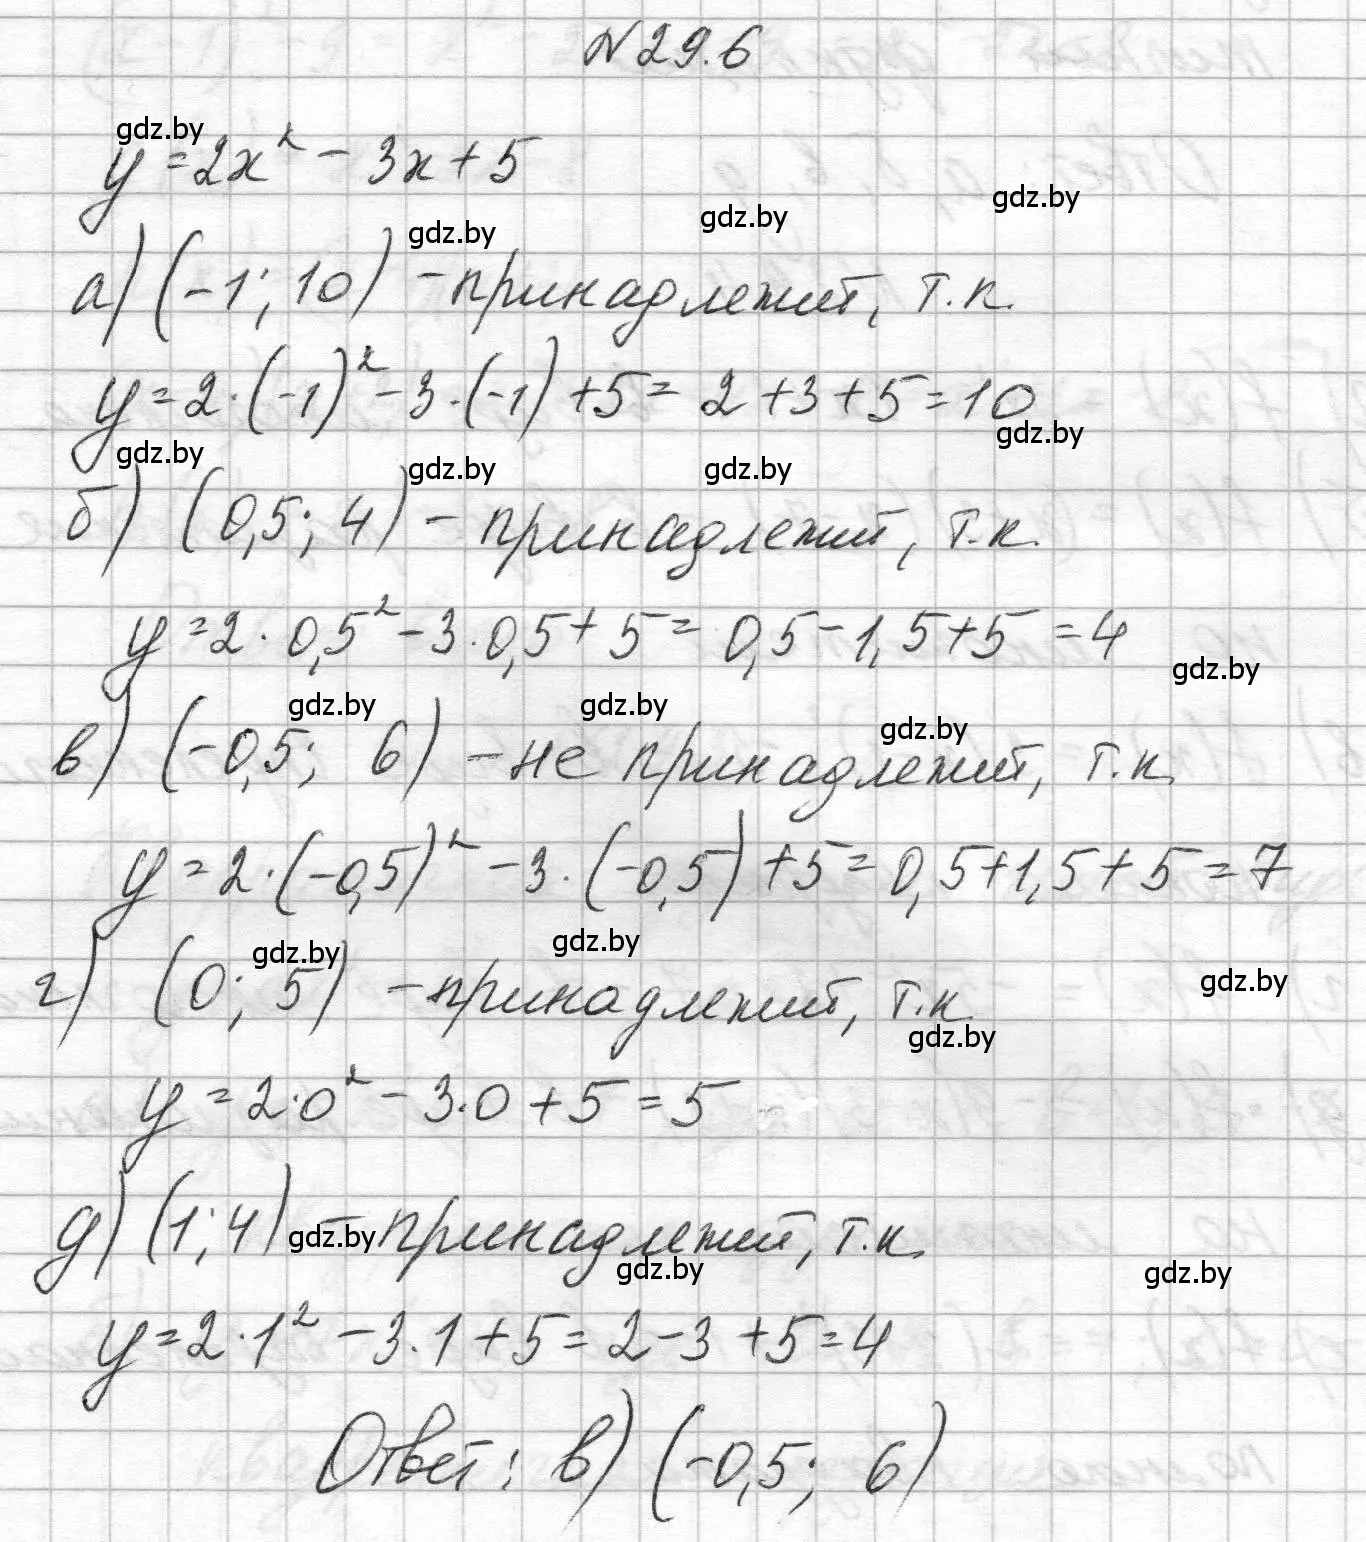 № 29.6
gdz.by
y = 2x² - 3x + 5
gdz.by gdz.by gdz.by
а) (-1; 10) - принадлежит, т.к.
y = 2·(-1)² - 3·(-1) + 5 = 2 + 3 + 5 = 10
gdz.by gdz.by gdz.by gdz.by
б) (0,5; 4) - принадлежит, т.к.
y = 2·0,5² - 3·0,5 + 5 = 0,5 - 1,5 + 5 = 4
gdz.by gdz.by gdz.by gdz.by
в) (-0,5; 6) - не принадлежит, т.к.
y = 2·(-0,5)² - 3·(-0,5) + 5 = 0,5 + 1,5 + 5 = 7
gdz.by gdz.by gdz.by
г) (0; 5) - принадлежит, т.к.
gdz.by
y = 2·0² - 3·0 + 5 = 5
д) (1; 4) - принадлежит, т.к.
gdz.by gdz.by gdz.by
y = 2·1² - 3·1 + 5 = 2 - 3 + 5 = 4
Ответ: в) (-0,5; 6)